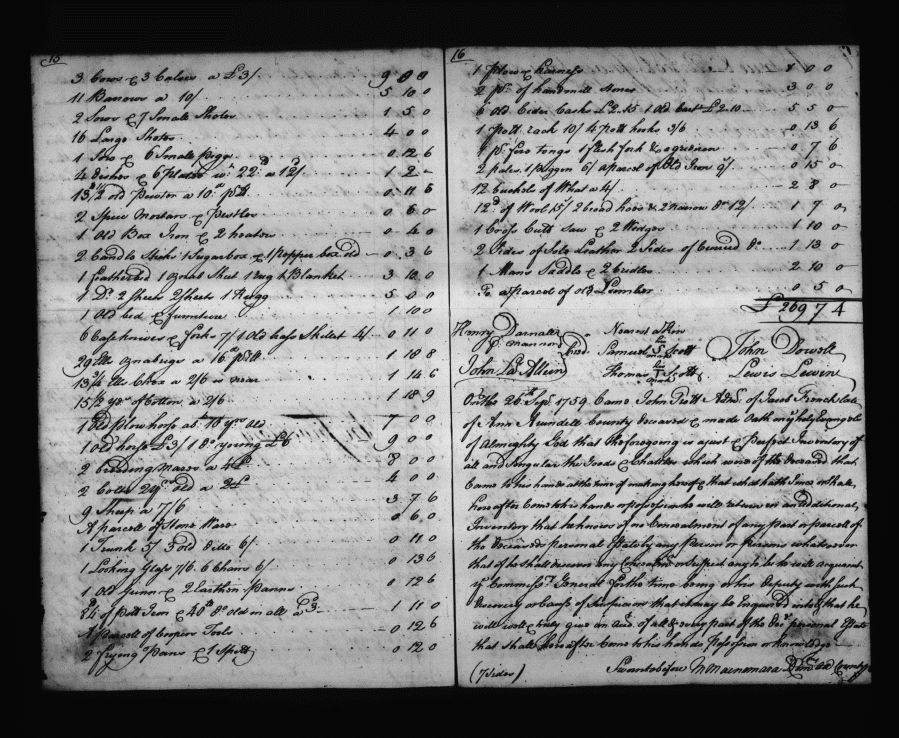 15
3 Cows & 3 Calves a £3/ 9 0 0
11 Barrows a 10/ 5 10 0
2 Sows & 7 Small Shotes 1 5 0
16 Large Shotes 4 0 0
1 Sow & 6 Small Piggs 0 12 6
4 Dishes & 6 Plates wt. 22 a 12/ 1 2 -
13 1/2 old Pewter a 10d p lb 0 11 6
2 Spice Mortars & Pestles 0 6 0
1 Old Box Iron & 2 heaters 0 4 0
2 Candle Sticks 1 Sugarbox & 1 Pepper box old 0 3 6
1 Featherbed 1 Sheet 1 Rugg & Blanket 3 10 0
1 Do. 2 Sheets 1 Rugg 5 0 0
1 Old bed & furniture 1 10 0
6 Case knives & Forks 7/ 1 Old brass Skillet 4/ 0 11 0
29 Ells Oznabrigs a 16d p Ell 1 18 8
13 3/4 Ells a 2/6 1 14 6
15 1/2 yds of Cotton a 2/6 1 18 9
1 Old plow horse abt. 10 yrs old 7 0 0
1 old horse £3/ 1 Do young £6 9 0 0
2 breeding mares a 4£ 8 0 0
2 Colts 2 yrs old a 2£ 4 0 0
9 Sheep a 7/6 3 7 6
A parcell of Stone Ware 0 6 0
1 Trunk 5/ 3 old 6/ 0 11 0
1 Looking Glass 7/6 6 Chairs 6/ 0 13 6
1 Old Gunn & 2 Earthen Panns 0 12 6
of Pott Iron & 40 lb Do old in all a 3d 1 11 0
A parcell of Coopers Tools 0 12 6
2 Frying Panns & 1 Spitt 0 12 0
16
1 Plow & harness 0 0
2 ps. of handmill Stones 3 0 0
6 Old Cider Casks £2.15 1 Old £2.10 5 5 0
1 Pott rack 10/ 4 pott hooks 3/6 0 13 6
1 pr. fire tongs 1 flesh fork & a gridiron 0 7 6
2 pales 1 piggin 6/ a parcel of Old Iron 9/ 0 15 0
12 bushels of Wheat a 4/ 2 8 0
12 lb of Wool 15/ 2 broad hoes & 2 narrow Do 12/ 1 7 0
1 Cross Cutt Saw & 2 Wedges 1 10 0
2 Sides of Sole Leather 2 Sides of Curried Do. 1 13 0
1 Mans Saddle & 2 bridles 2 10 0
To a parcel of old Lumber 0 5 0
£ 269 7 4
Henry Darnall
Cred.
John Allein
Nearest a Kin
Samuel S Scott
mark
Thomas T Scott
mark
John Dowell
Lewis Lewin
On the 26th Sept. 1759 Came John Pitt Admr. of Jacob French late
of Ann Arundell County deceased & made Oath on ye holy Evangels
of Almighty God that the foregoing is a just & Perfect Inventory of
all and Singular the Goods & Chattels which were of the deceased that
Came to his hands at the time of making hereof & that what hath since or shall
hereafter Come to his hands or possession he will return in an additional
Inventory that he knows of no Concealment of any part or parcell of
the deceaseds personal Estate by any Person or Persons whatsoever
that if he shall discover any Concealed or suspect any to be he will acquaint
ye Commissy. General for the time being or his Deputy with such
discovery or Cause of Suspicion that it may be Enquired into & that he
will well & truly give an Acct. of all & every part of the Decd. personal Estate
that shall hereafter come to his hands Possession or knowledge
(7 Sides)
Sworn to before M Macnemara County